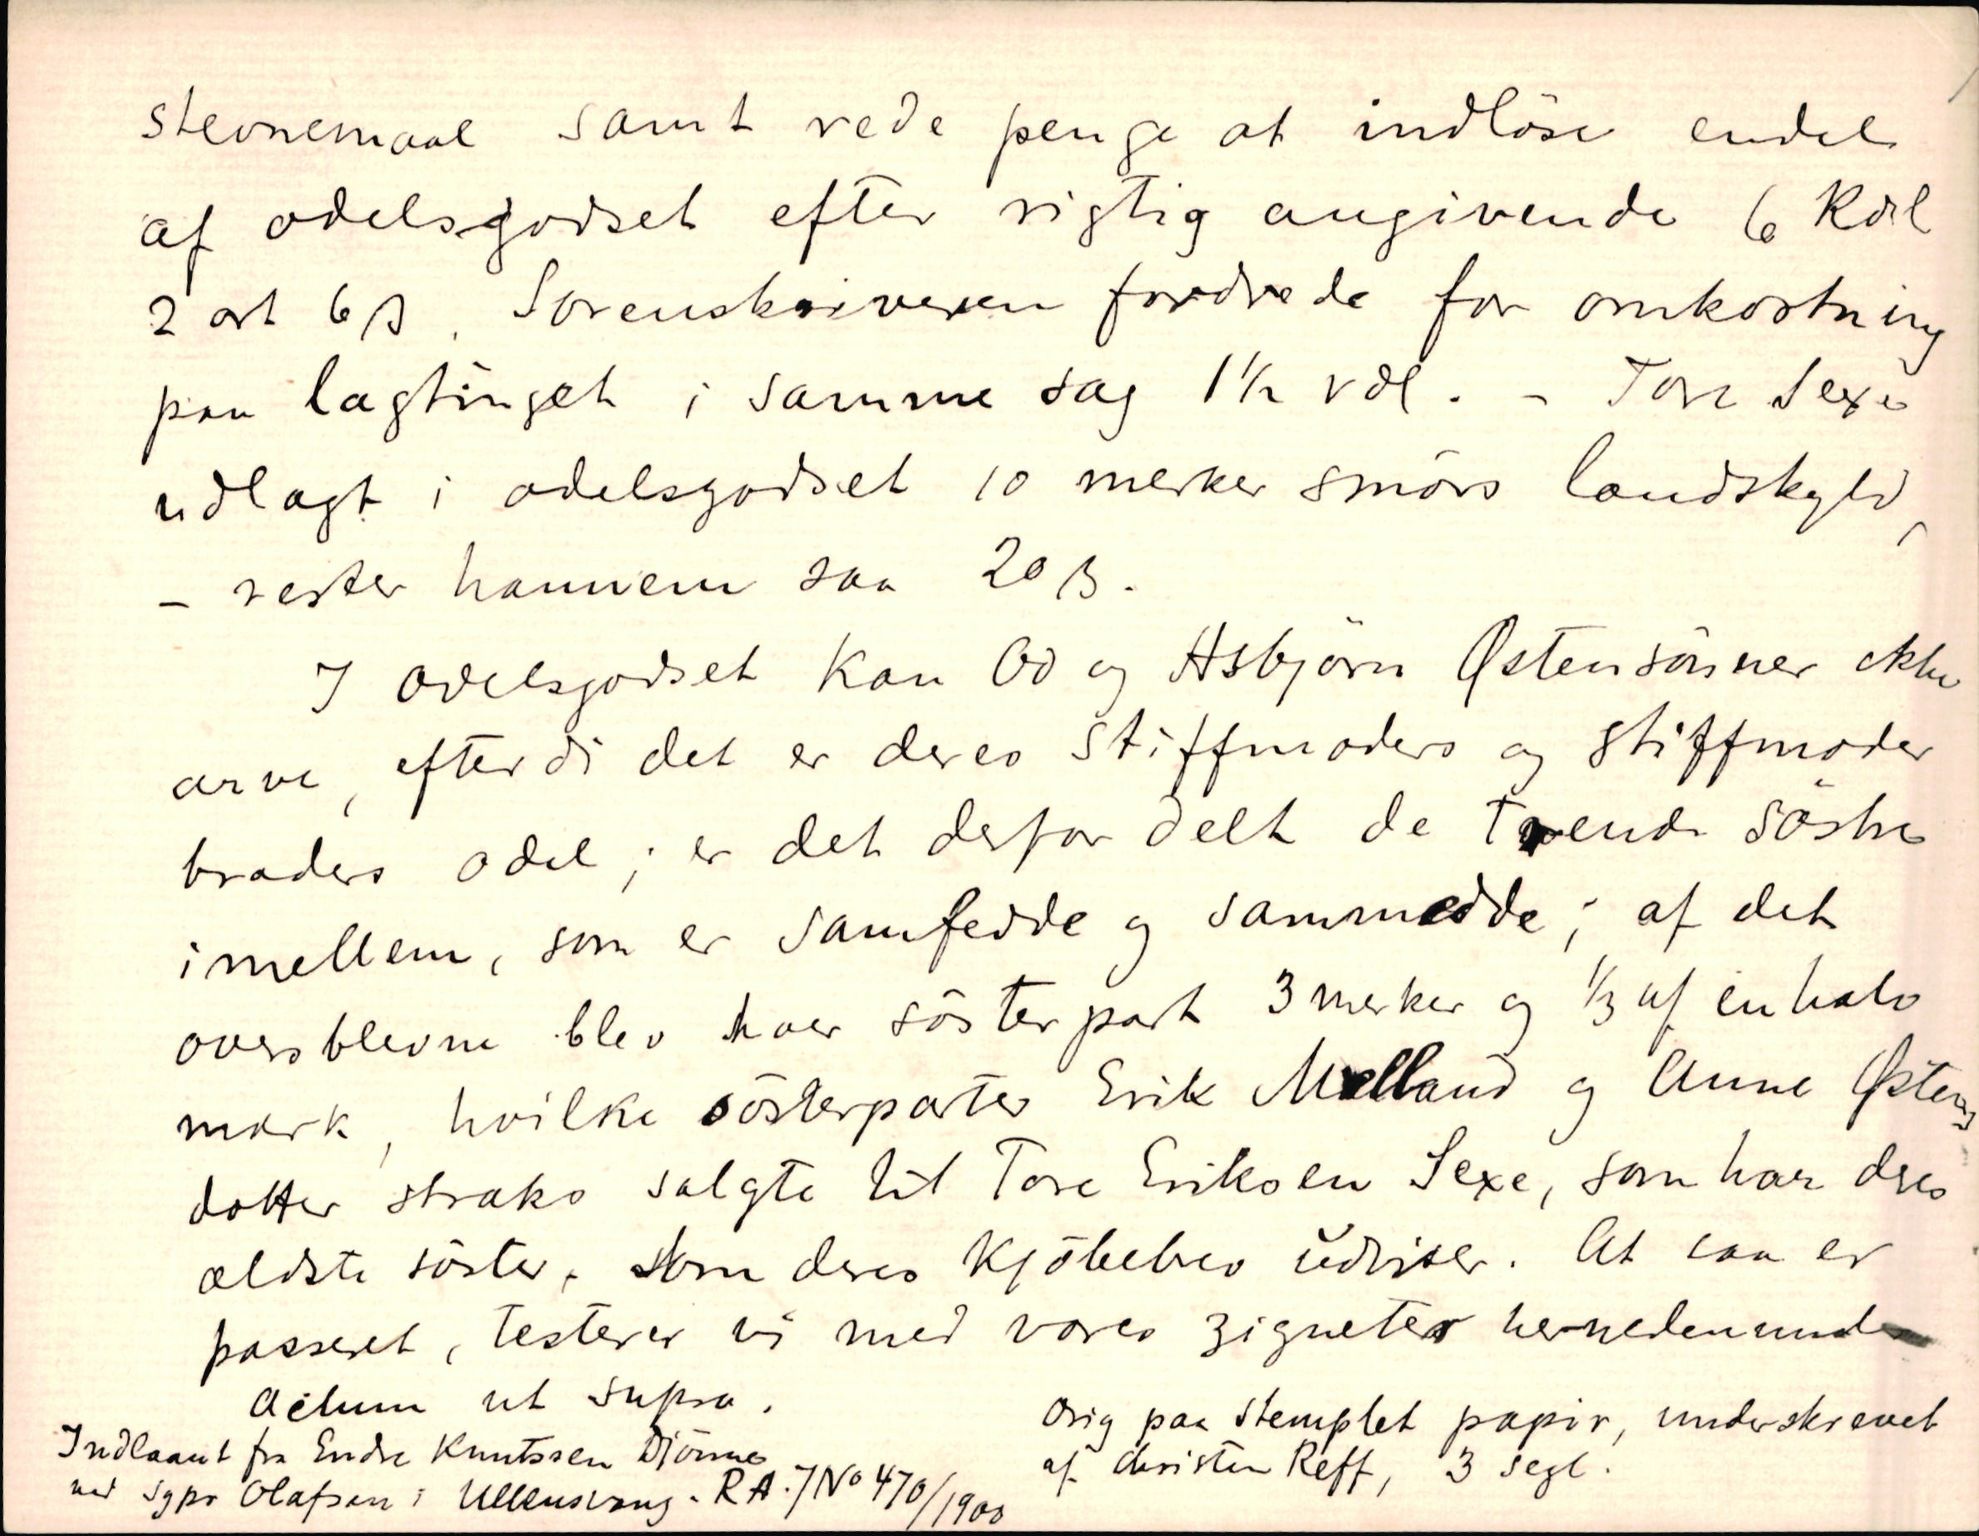 stevnemaal samt rede penge at indlöse endel
af odelsgodset efter rigtig angivende 6 Rdl
2 ort 6 β. Sorenskriveren fordrede for omkostning
paa lagtinget i samme sag 1½ rdl. - Tore Sexe
udlagt i odelsgodset 10 merker smörs landskyld,
- rester hannem saa 20 β.
I odelsgodset kan Od og Asbjörn Østensönner ikke
arve, efterdi det er deres stiffmoders og stiffmoder
broders odel; er det derfor delt de trende söstre
imellem, som er samfedde og sammødde; af det
overblevne blev hver sösterpart 3 merker og ⅓ af en halv
mark, hvilke sösterparter Erik Melland og Anne Østens
dotter straks solgte til Tore Eriksen Sexe, som har deres
ældste söster, som deres kjöbebrev udviser. At saa er
passeret, testerer vi med vores zigneter hernedenunder
Actum ut supra.
Indlaant fra Endre Knutssen Djönne
ved sgpr Olafsen i Ullensvang. RA. JNo 470/1900
Orig paa stemplet papir, underskrevet
af Christen Reff, 3 segl.